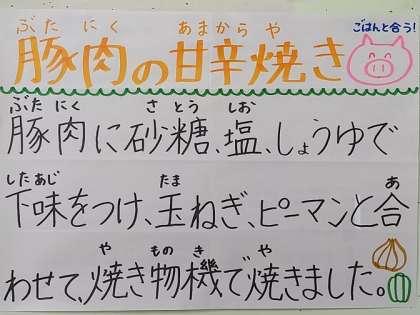 ぶた にく あまから や
豚肉の甘辛焼き
ごはんと合う!
ぶた にく さとう しお
豚肉に砂糖、塩、しょうゆで
したあじ たま あ
下味をつけ、玉ねぎ、ピーマンと合
や もの き や
わせて、焼き物機で焼きました。